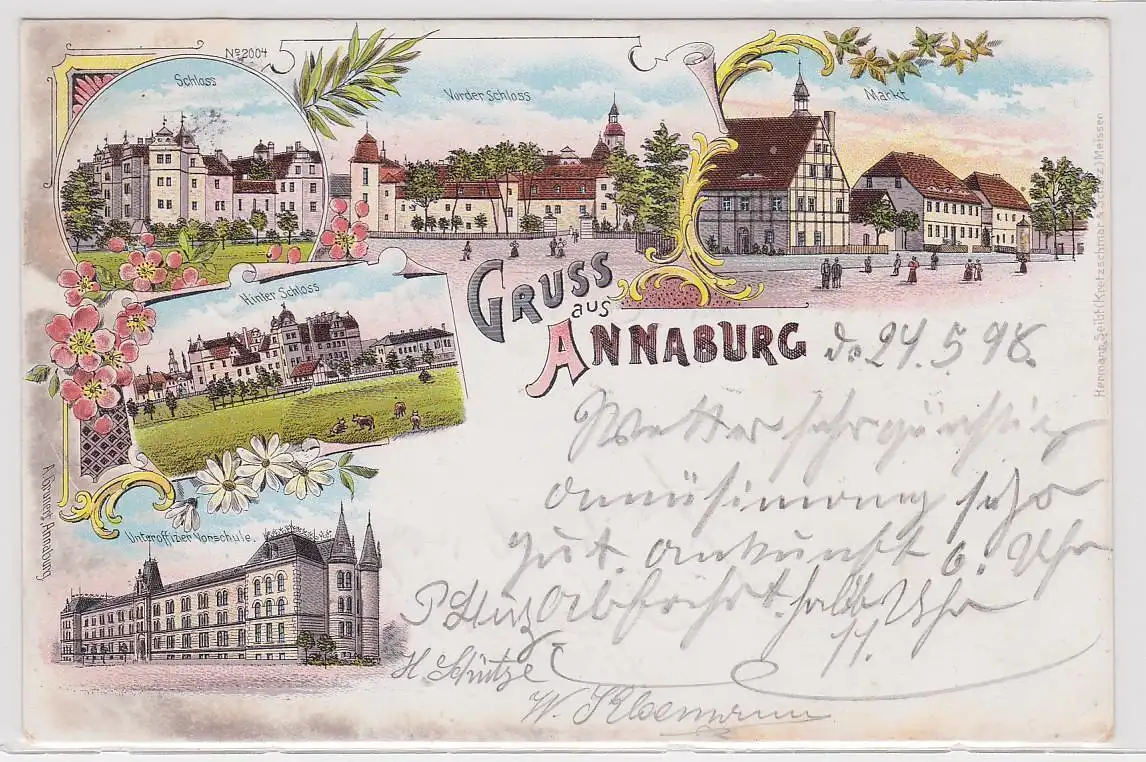 No 2004
Schloss
Vorder Schloss
Markt
Hinter Schloss
GRUSS
aus
ANNABURG
d. 24.5.98.
Wetter sehr günstig
Amüsirung sehr
gut. Ankunft 6. Uhr
Abfahrt halb Uhr
11.
H. Schütze
W. Kloemann
Unteroffizier Vorschule.
A. Grunert, Annaburg
Hermann Seibt (Kretzschmar & Meissen